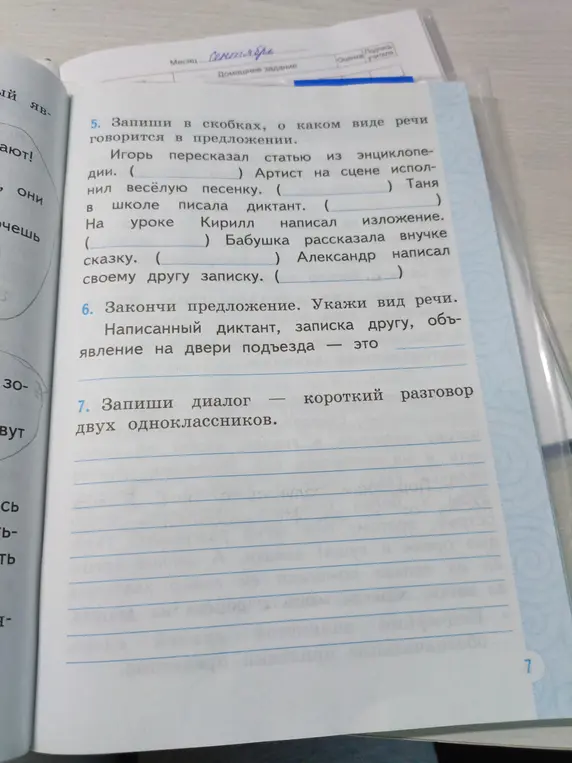 Месяц сентябрь
Домашнее задание
Оценка
Подпись учителя
ый яв-
ают!
, они
очешь
зо-
вут
сь
ть-
ть
н-
5. Запиши в скобках, о каком виде речи
говорится в предложении.
Игорь пересказал статью из энциклопе-
дии. ( ) Артист на сцене испол-
нил весёлую песенку. ( ) Таня
в школе писала диктант. ( )
На уроке Кирилл написал изложение.
( ) Бабушка рассказала внучке
сказку. ( ) Александр написал
своему другу записку. ( )
6. Закончи предложение. Укажи вид речи.
Написанный диктант, записка другу, объ-
явление на двери подъезда — это
7. Запиши диалог — короткий разговор
двух одноклассников.
7